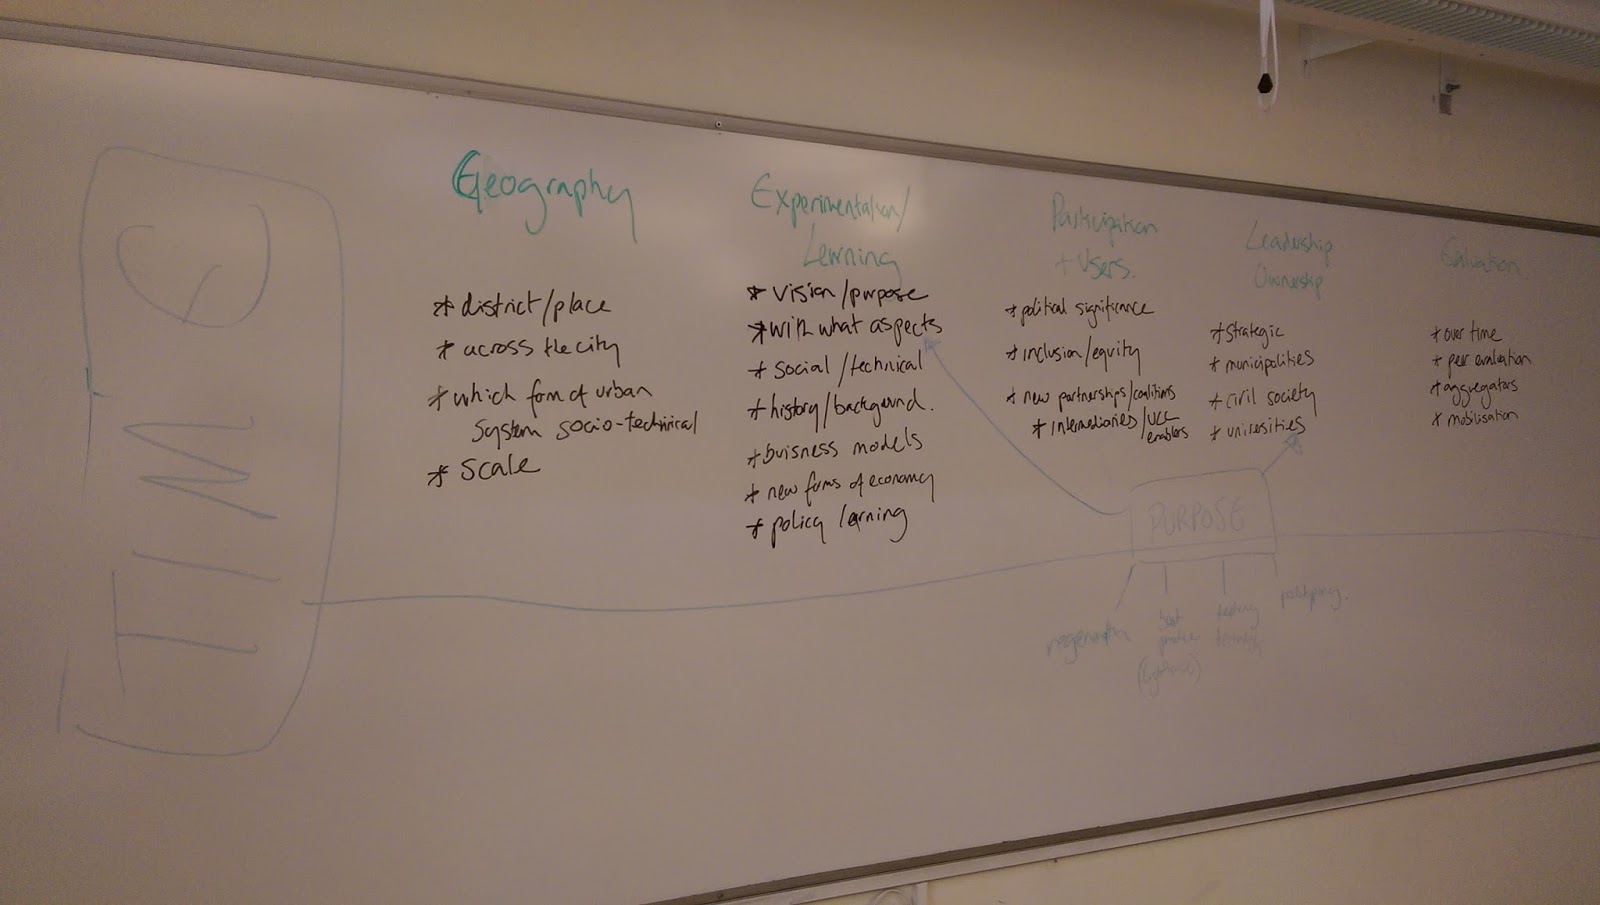 TIME
Geography
* district/place
* across the city
* which form of urban
system socio-technical
* scale
Experimentation/
Learning
* vision/purpose
* with what aspects
* social/technical
* history/background.
* buisness models
* new forms of economy
* policy learning
Participation
+ Users.
* political significance
* inclusion/equity
* new partnerships/coalitions
* intermediaries/
enablers
Leadership
Ownership
* strategic
* municipalities
* civil society
* universities
Evaluation
* over time
* peer evaluation
* aggregators
* mobilisation
PURPOSE
regeneration
best
practice
testing
prototyping.